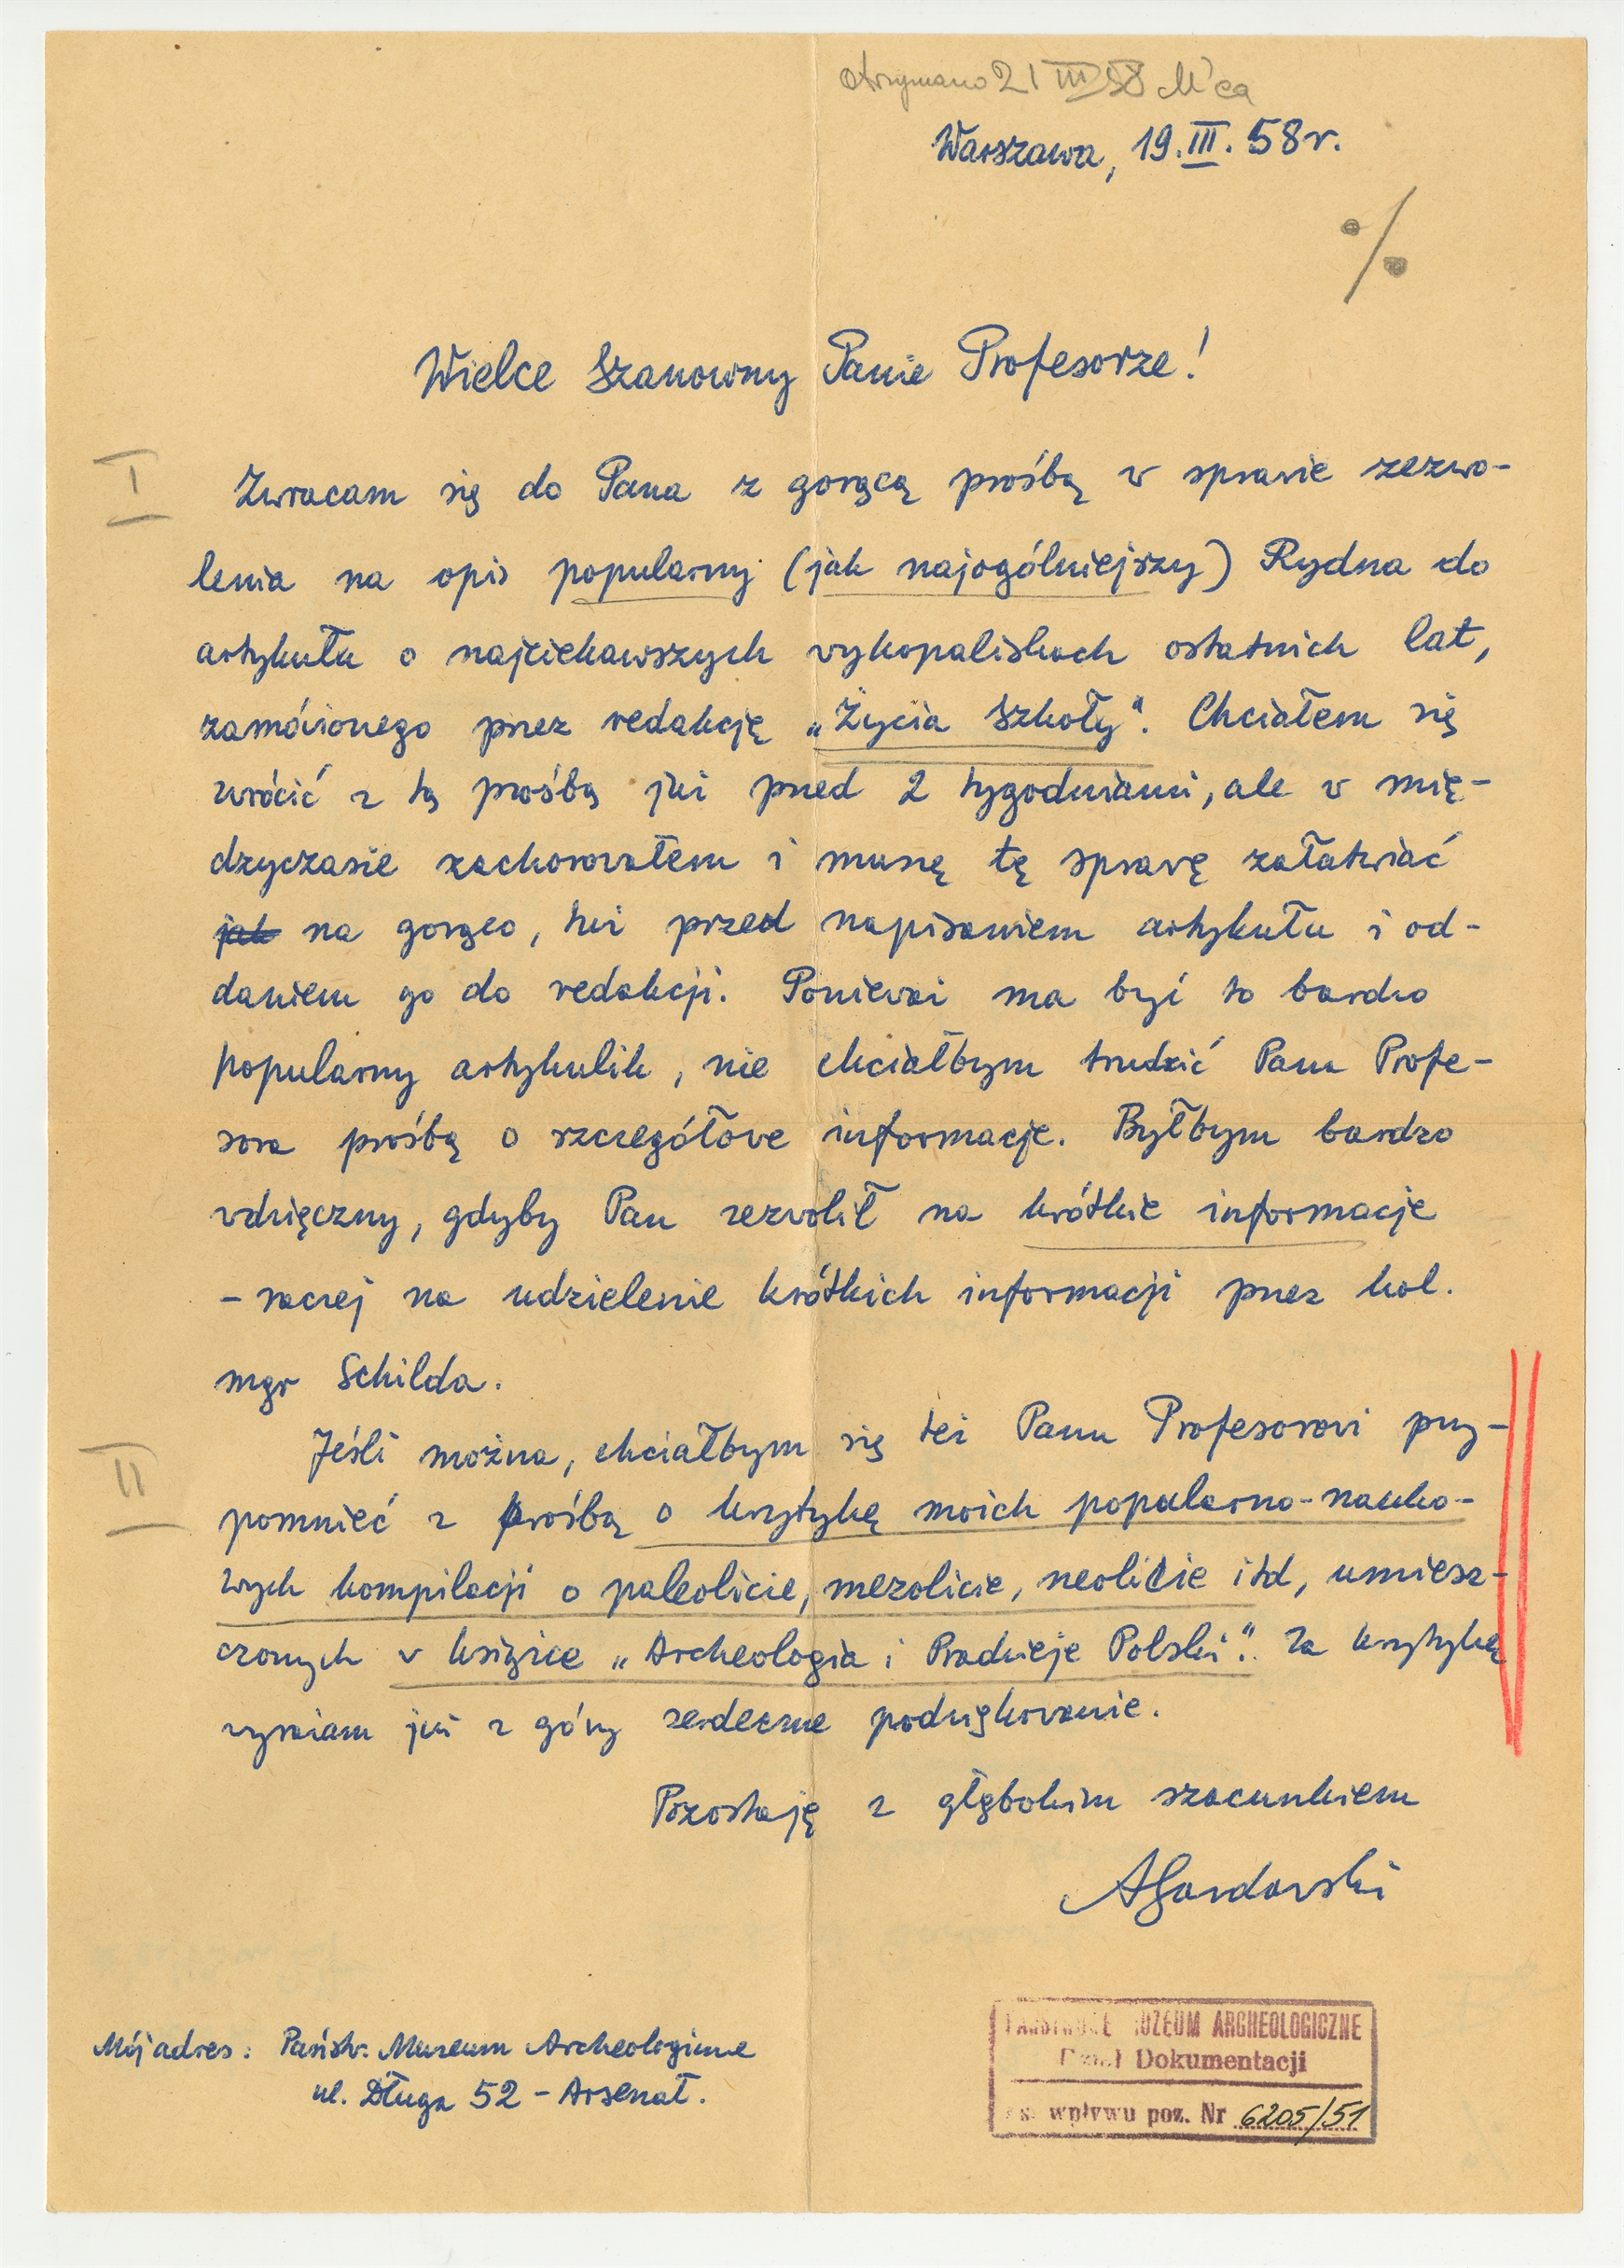 otrzymano 21 III 58
Warszawa, 19.III.58r.
Wielce Szanowny Panie Profesorze!
I
Zwracam się do Pana z gorącą prośbą w sprawie zezwo-
lenia na opis popularny (jak najogólniejszy) Rydna do
artykułu o najciekawszych wykopaliskach ostatnich lat,
zamówionego przez redakcję „Życia Szkoły". Chciałem się
zwrócić z tą prośbą już przed 2 tygodniami, ale w mię-
dzyczasie zachorowałem i muszę tę sprawę załatwiać
jak na gorąco, tuż przed napisaniem artykułu i od-
daniem go do redakcji. Ponieważ ma być to bardzo
popularny artykulik, nie chciałbym trudzić Pana Profe-
sora prośbą o szczegółowe informacje. Byłbym bardzo
wdzięczny, gdyby Pan zezwolił na krótkie informacje
- raczej na udzielenie krótkich informacji przez kol.
mgr Schilda.
II
Jeśli można, chciałbym się też Panu Profesorowi przy-
pomnieć z prośbą o krytykę moich popularno-nauko-
wych kompilacji o paleolicie, mezolicie, neolicie itd, umiesz-
czonych w książce „Archeologia i Pradzieje Polski". Za krytykę
wyrażam już z góry serdeczne podziękowanie.
Pozostaję z głębokim szacunkiem
AGardawski
Mój adres: Państw. Muzeum Archeologiczne
ul. Długa 52 - Arsenał.
PAŃSTWOWE MUZEUM ARCHEOLOGICZNE
Dział Dokumentacji
Ks. wpływu poz. Nr 6205/51